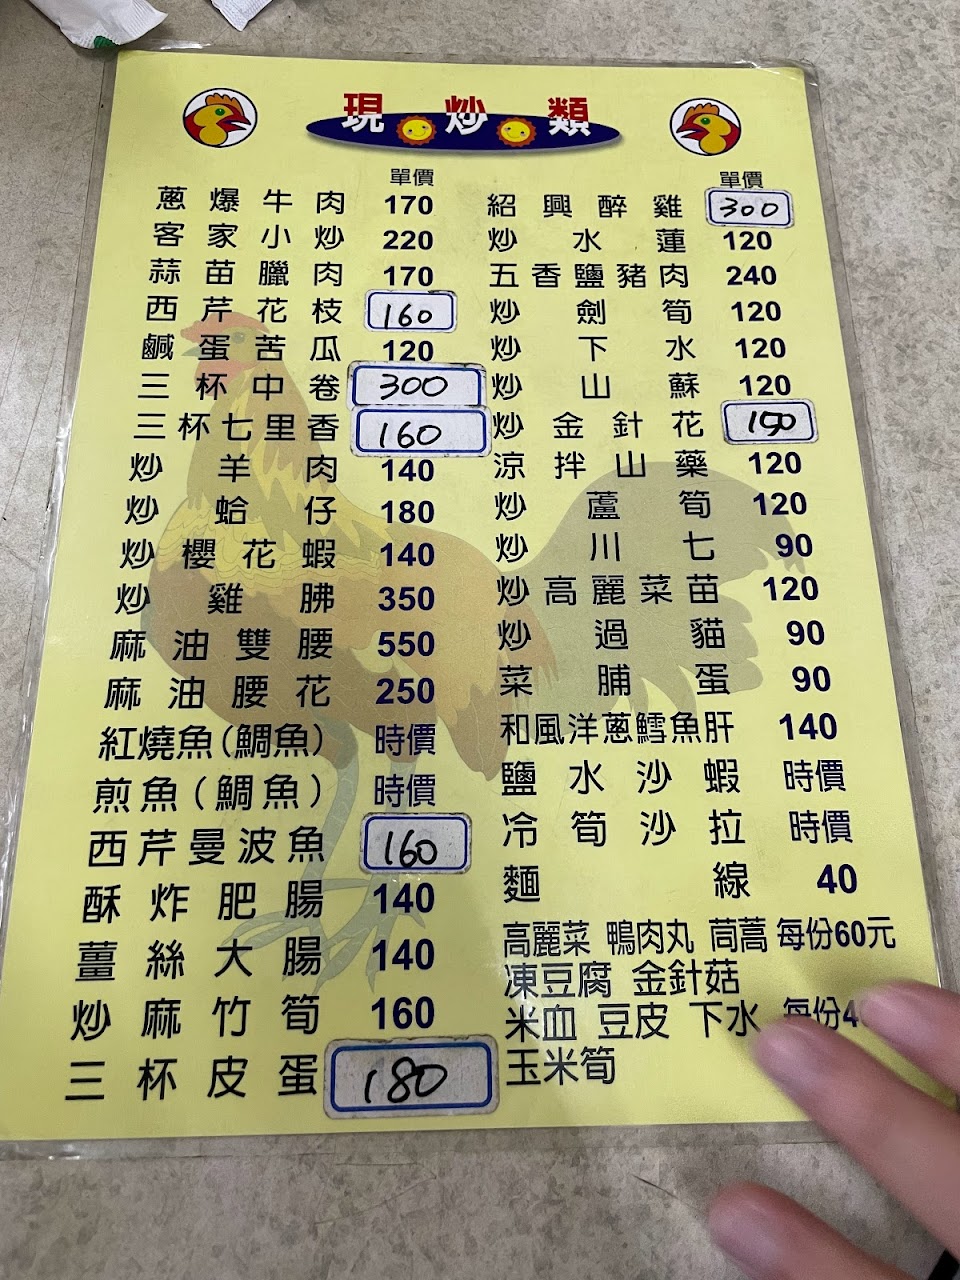 現炒類
單價
蔥爆牛肉 170
客家小炒 220
蒜苗臘肉 170
西芹花枝 160
鹹蛋苦瓜 120
三杯中卷 300
三杯七里香 160
炒羊肉 140
炒蛤仔 180
炒櫻花蝦 140
炒雞胇 350
麻油雙腰 550
麻油腰花 250
紅燒魚(鯛魚) 時價
煎魚(鯛魚) 時價
西芹曼波魚 160
酥炸肥腸 140
薑絲大腸 140
炒麻竹筍 160
三杯皮蛋 180
單價
紹興醉雞 300
炒水蓮 120
五香鹽豬肉 240
炒劍筍 120
炒下水 120
炒山蘇 120
炒金針花 150
涼拌山藥 120
炒蘆筍 120
炒川七 90
炒高麗菜苗 120
炒過貓 90
菜脯蛋 90
和風洋蔥鱈魚肝 140
鹽水沙蝦 時價
冷筍沙拉 時價
麵線 40
高麗菜 鴨肉丸 茼蒿 每份60元
凍豆腐 金針菇
米血 豆皮 下水 每份4
玉米筍